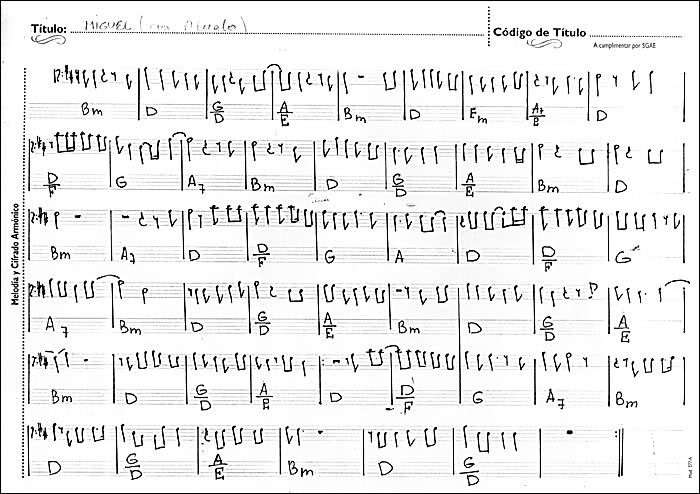 Título: MIGUEL (
Código de Título
A cumplimentar por SGAE
Melodía y Cifrado Armónico
Bm D G/D A/E Bm D Em A7/E D
D/F G A7 Bm D G/D A/E Bm D
Bm A7 D D/F G A D D/F G
A7 Bm D G/D A/E Bm D G/D A/E
Bm D G/D A/E D D/F G A7 Bm
D G/D A/E Bm D G/D